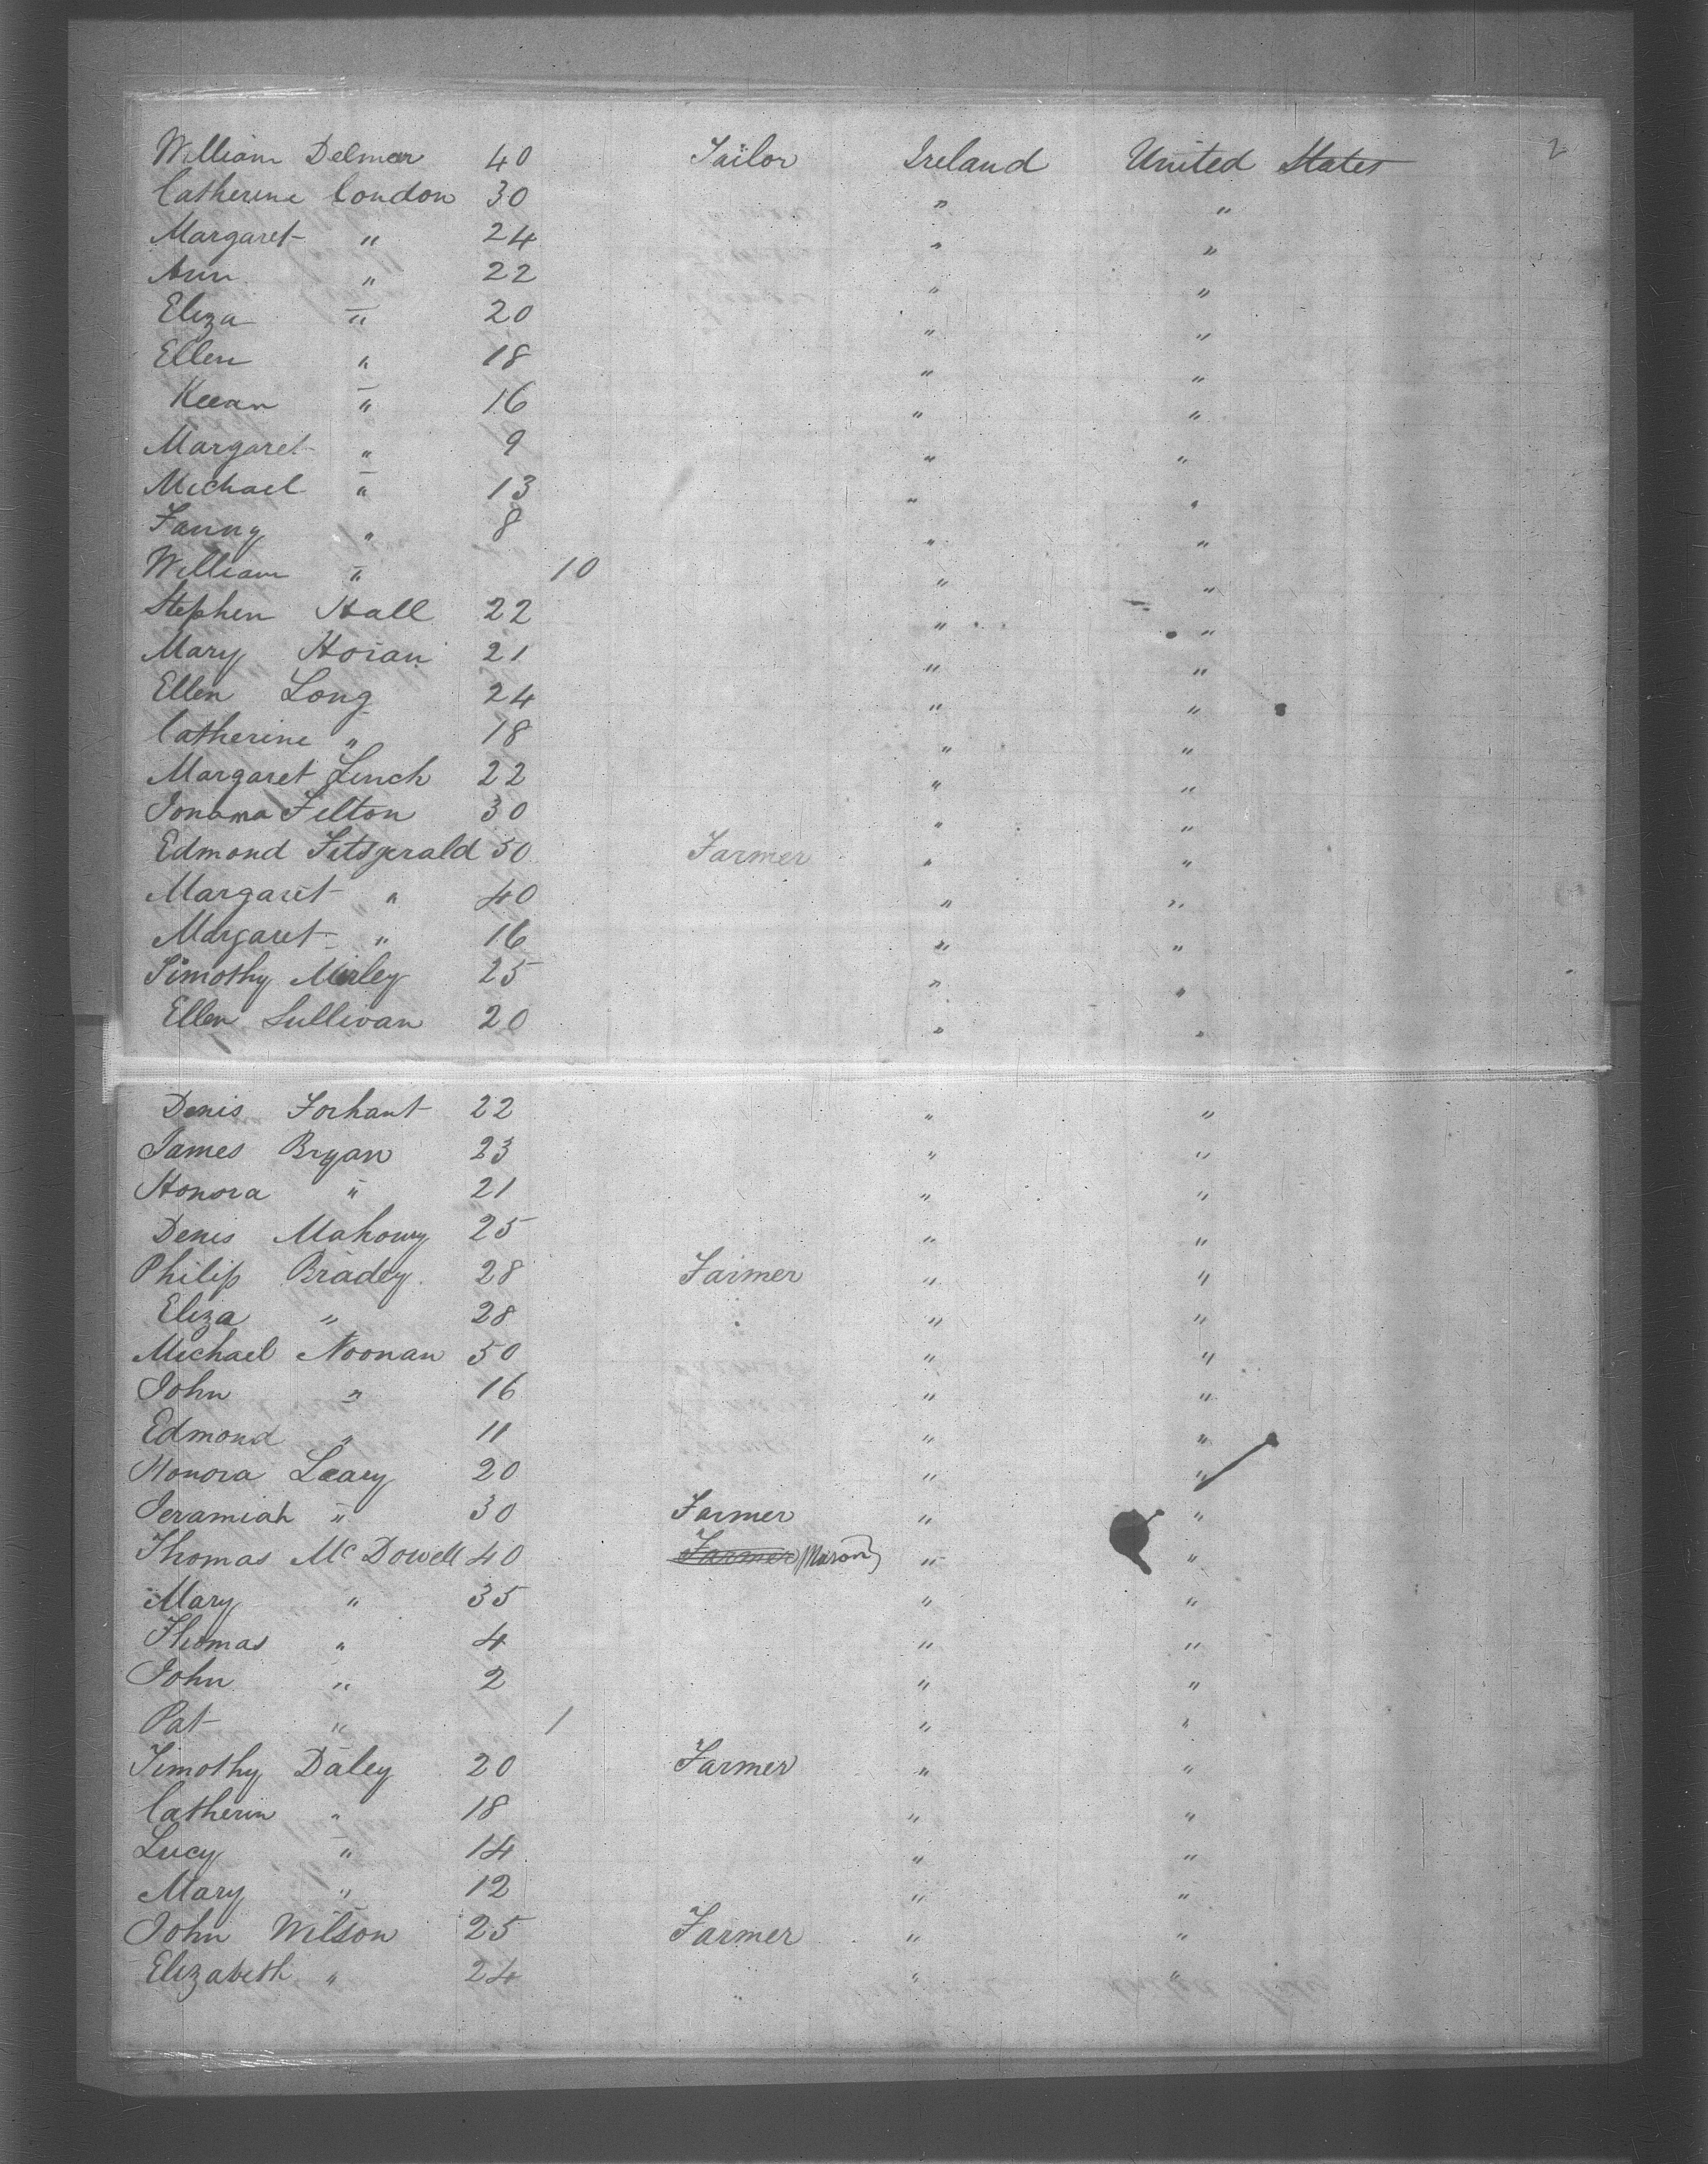 William Delmar 40 Tailor Ireland United States 2
Catherine Condon 30 " "
Margaret " 24 " "
Ann " 22 " "
Eliza " 20 " "
Ellen " 18 " "
" 16 " "
Margaret " 9 " "
Michael " 13 " "
Fanny " 8 " "
William " 10 " "
Stephen Hall 22 " "
Mary Horan 21 " "
Ellen Long 24 " "
Catherine " 18 " "
Margaret Linch 22 " "
Felton 30 " "
Edmond Fitsgerald 50 Farmer " "
Margaret " 40 " "
Margaret " 16 " "
Timothy 25 " "
Ellen Sullivan 20 " "
Denis Forhant 22 " "
James Bryan 23 " "
Honora " 21 " "
Denis Mahony 25 " "
Philip Bradey 28 Farmer " "
Eliza " 28 " "
Michael Noonan 50 " "
John " 16 " "
Edmond " 11 " "
Honora Leary 20 " "
Jeramiah " 30 Farmer " "
Thomas McDowell 40 Farmer (Mason) " "
Mary " 35 " "
Thomas " 4 " "
John " 2 " "
Pat " 1 " "
Timothy Daley 20 Farmer " "
Catherin " 18 " "
Lucy " 14 " "
Mary " 12 " "
John Wilson 25 Farmer " "
Elizabeth " 24 " "